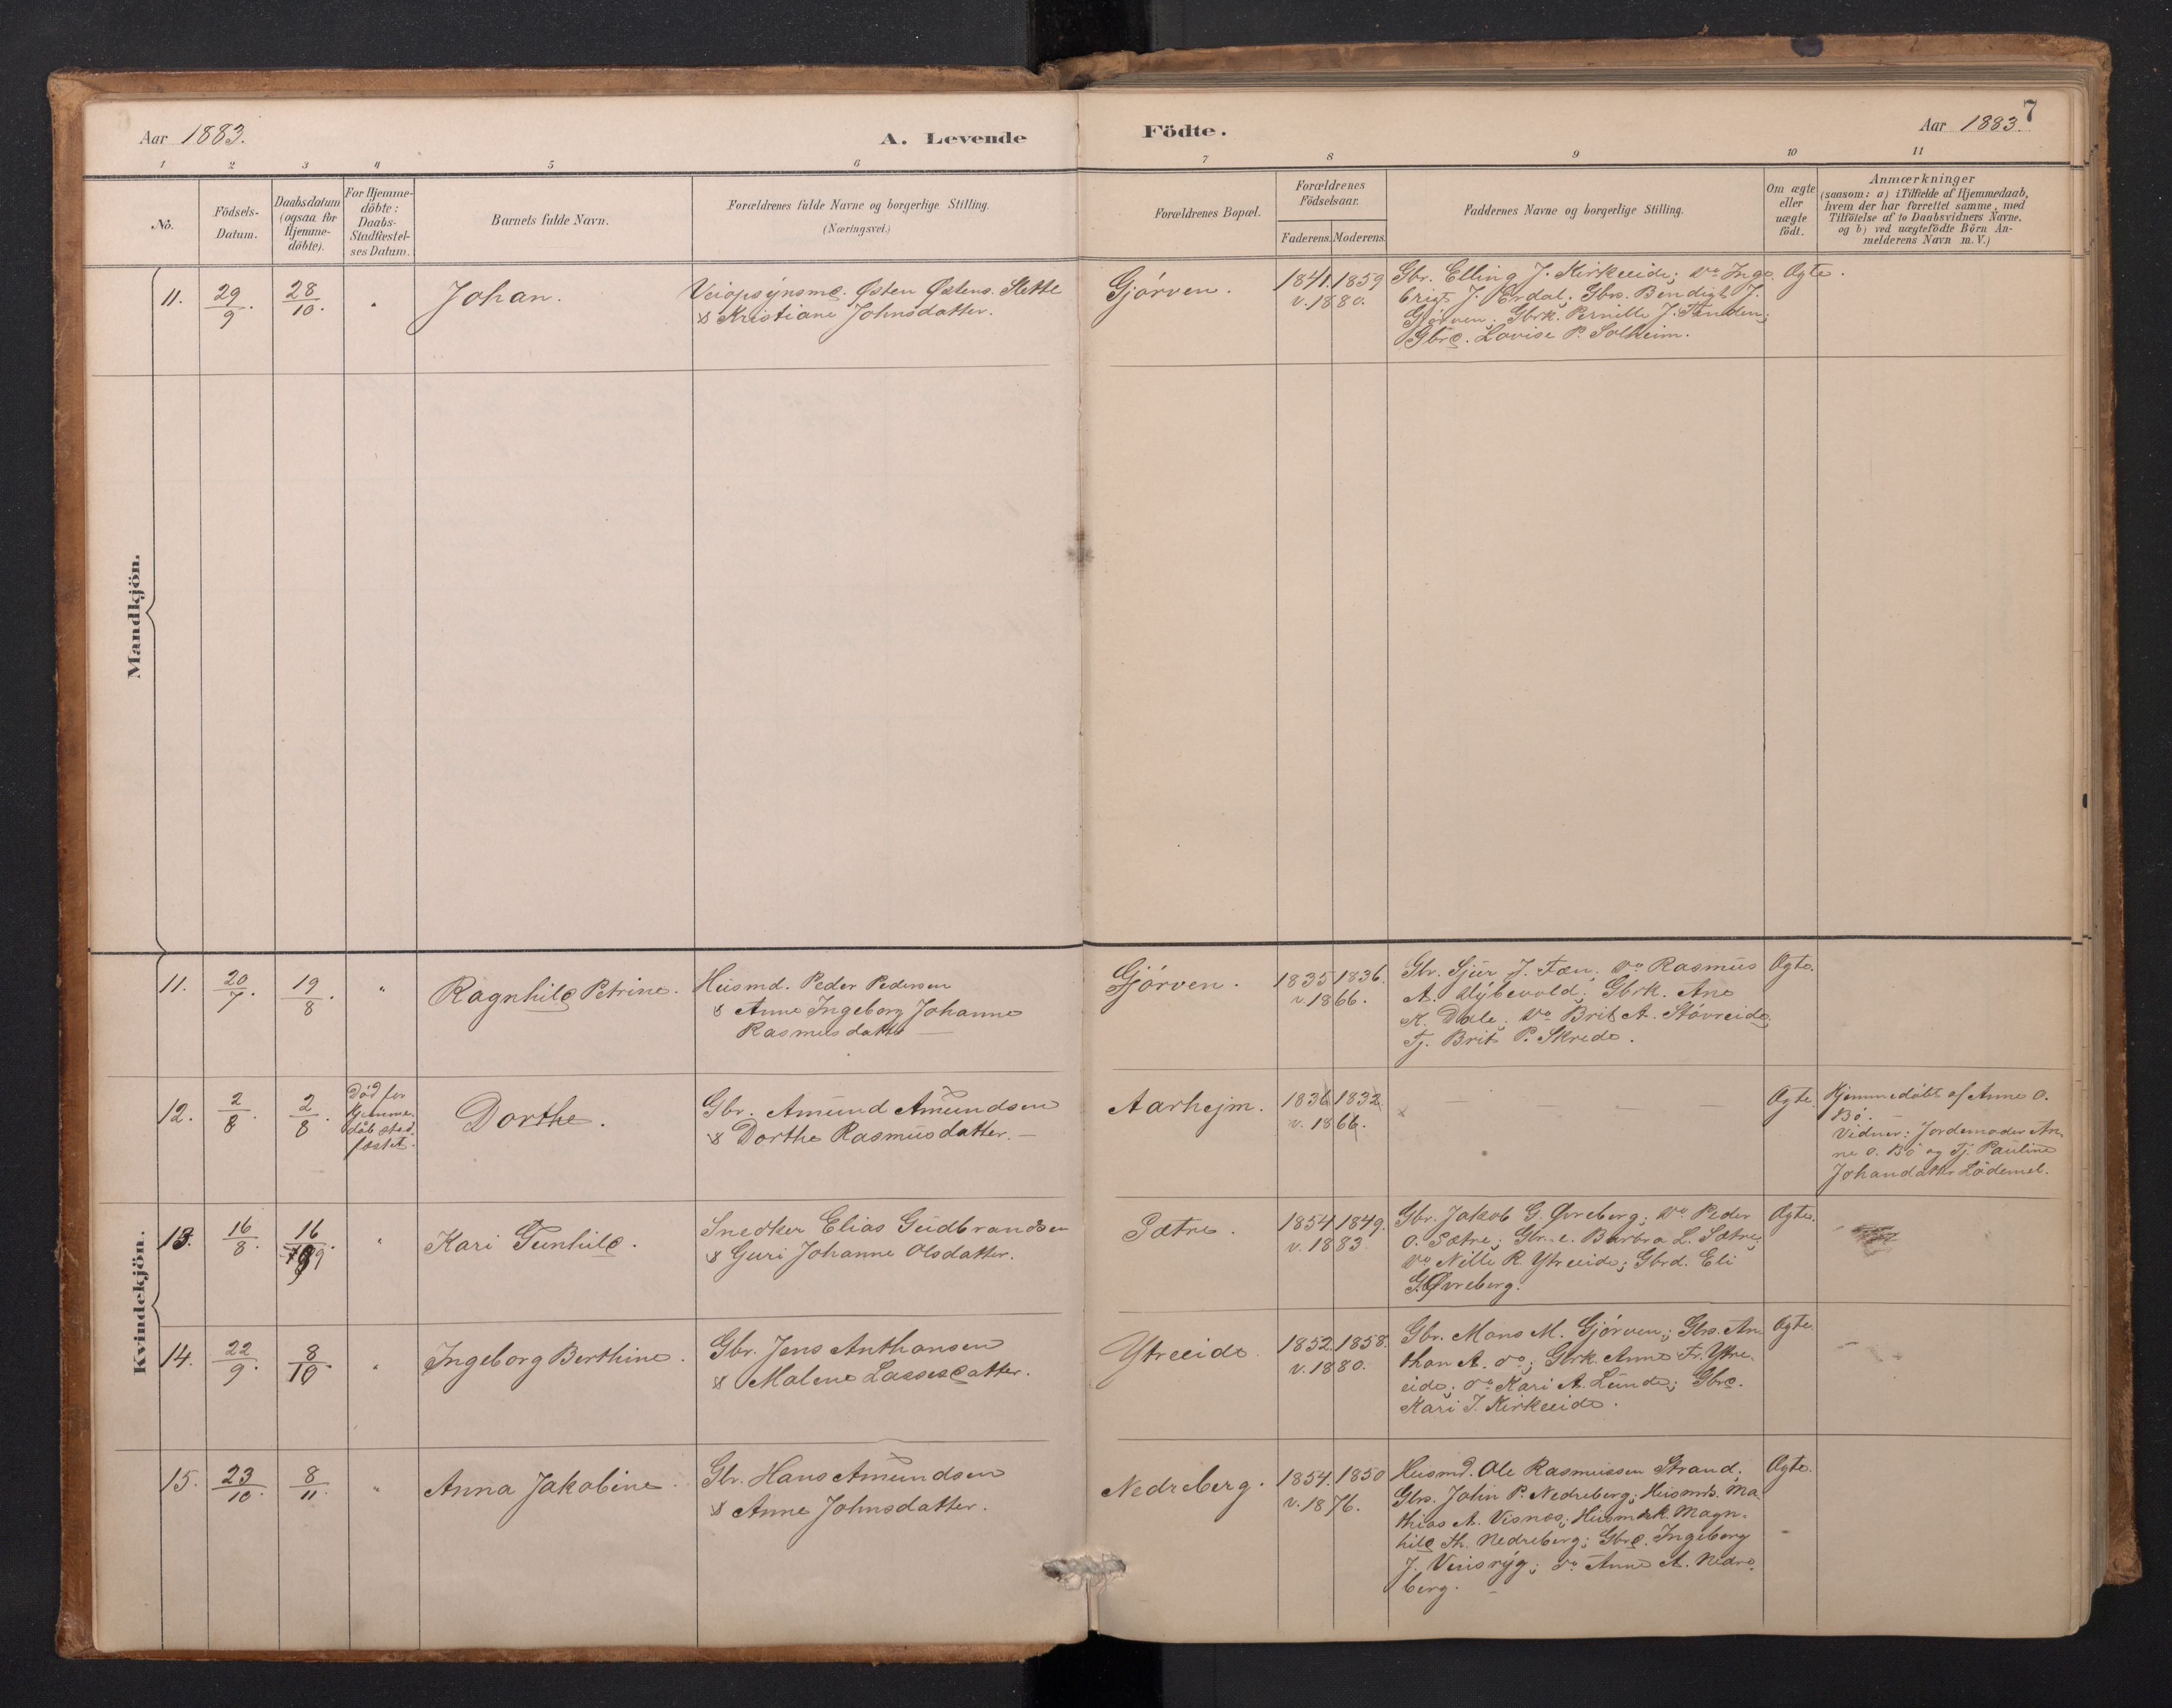 Aar 1883.
A. Levende
Födte.
Aar 1883.
7
1 2 3 4 5 6 7 8 9 10 11
No.
Födsels-
Datum.
Daabsdatum
(ogsaa for
Hjemme-
döbte).
For Hjemme-
döbte:
Daabs-
Stadfæstel-
ses Datum.
Barnets fulde Navn.
Forældrenes fulde Navne og borgerlige Stilling.
(Næringsvei.)
Forældrenes Bopæl.
Forældrenes
Födselsaar.
Faderens. Moderens.
Faddernes Navne og borgerlige Stilling.
Om ægte
eller
uægte
födt.
Anmærkninger
(saasom: a) i Tilfælde af Hjemmedaab,
hvem der har forrettet samme, med
Tilföielse af to Daabsvidners Navne.
og b) ved uægtefödte Börn An-
melderens Navn m. V.)
Mandkjön.
11. 29/9. 28/10. " Johan.
Veiopsynsmd. Østen Østens. Slette
& Kristiane Johnsdatter.
Gjörven.
1841. 1859
v. 1880.
Gbr. Elling J. Kirkeeide; do Inge-
brigt J. Erdal; Gbrs. Bendigt J.
Gjörven; Gbrk. Pernille J. Tenden;
Gbrd. Lovise P. Solheim.
Ægte.
Kvindekjön.
11. 20/7. 19/8. " Ragnhild Petrine.
Husmd. Peder Pedersen
& Anne Ingeborg Johanne
Rasmusdatter
Gjörven.
1835 1836.
v. 1866.
Gbr. Sjur J. Tæn; do Rasmus
A. Myhrvold; Gbrk. Ane
K. Dale; do Brit A. Stövreide;
Tj. Brit P. Skrede.
Ægte.
12. 2/8. 2/8.
Död før
Hjemme-
dåb stad-
fæstet.
Dorthe.
Gbr. Amund Amundsen
& Dorthe Rasmusdatter.
Aarhejm.
1836 1832.
v. 1866.
Ægte.
Hjemmedöbt af Anne O.
Bö.
Vidner: Jordemoder An-
ne O. Bö og Tj. Pauline
Johansdatter Lödemel.
13. 16/8. 16/9. " Kari Gunhild.
Snedker Elias Gudbrandsen
& Guri Johanne Olsdatter.
Sætre.
1854 1849.
v. 1883
Gbr. Jakob G. Øvreberg; do Peder
O. Sætre; Gbr.e. Barbra L. Sætre;
do Nille R. Ytreeide; Gbrd. Eli
G. Øvreberg.
Ægte.
14. 22/9. 8/10. " Ingeborg Berthine.
Gbr. Jens Anthonsen
& Malene Lassesdatter.
Ytreeide.
1852. 1858.
v. 1880.
Gbr. Mons M. Gjörven; Gbrs. An-
thon A. do; Gbrk. Anne Fr. Ytre-
eide; do Kari A. Lunde; Gbrd.
Kari J. Kirkeeide.
Ægte.
15. 23/10. 8/11. " Anna Jakobine.
Gbr. Hans Amundsen
& Anne Johnsdatter.
Nedreberg.
1854. 1850
v. 1876.
Husmd. Ole Rasmussen Strand;
Gbrs. John P. Nedreberg; Husmds. Ma-
thias A. Visnæs; Husmdk. Magn-
hild Th. Nedreberg; Gbrd. Ingeborg
J. Vinsryg; do Anne A. Nedre-
berg.
Ægte.